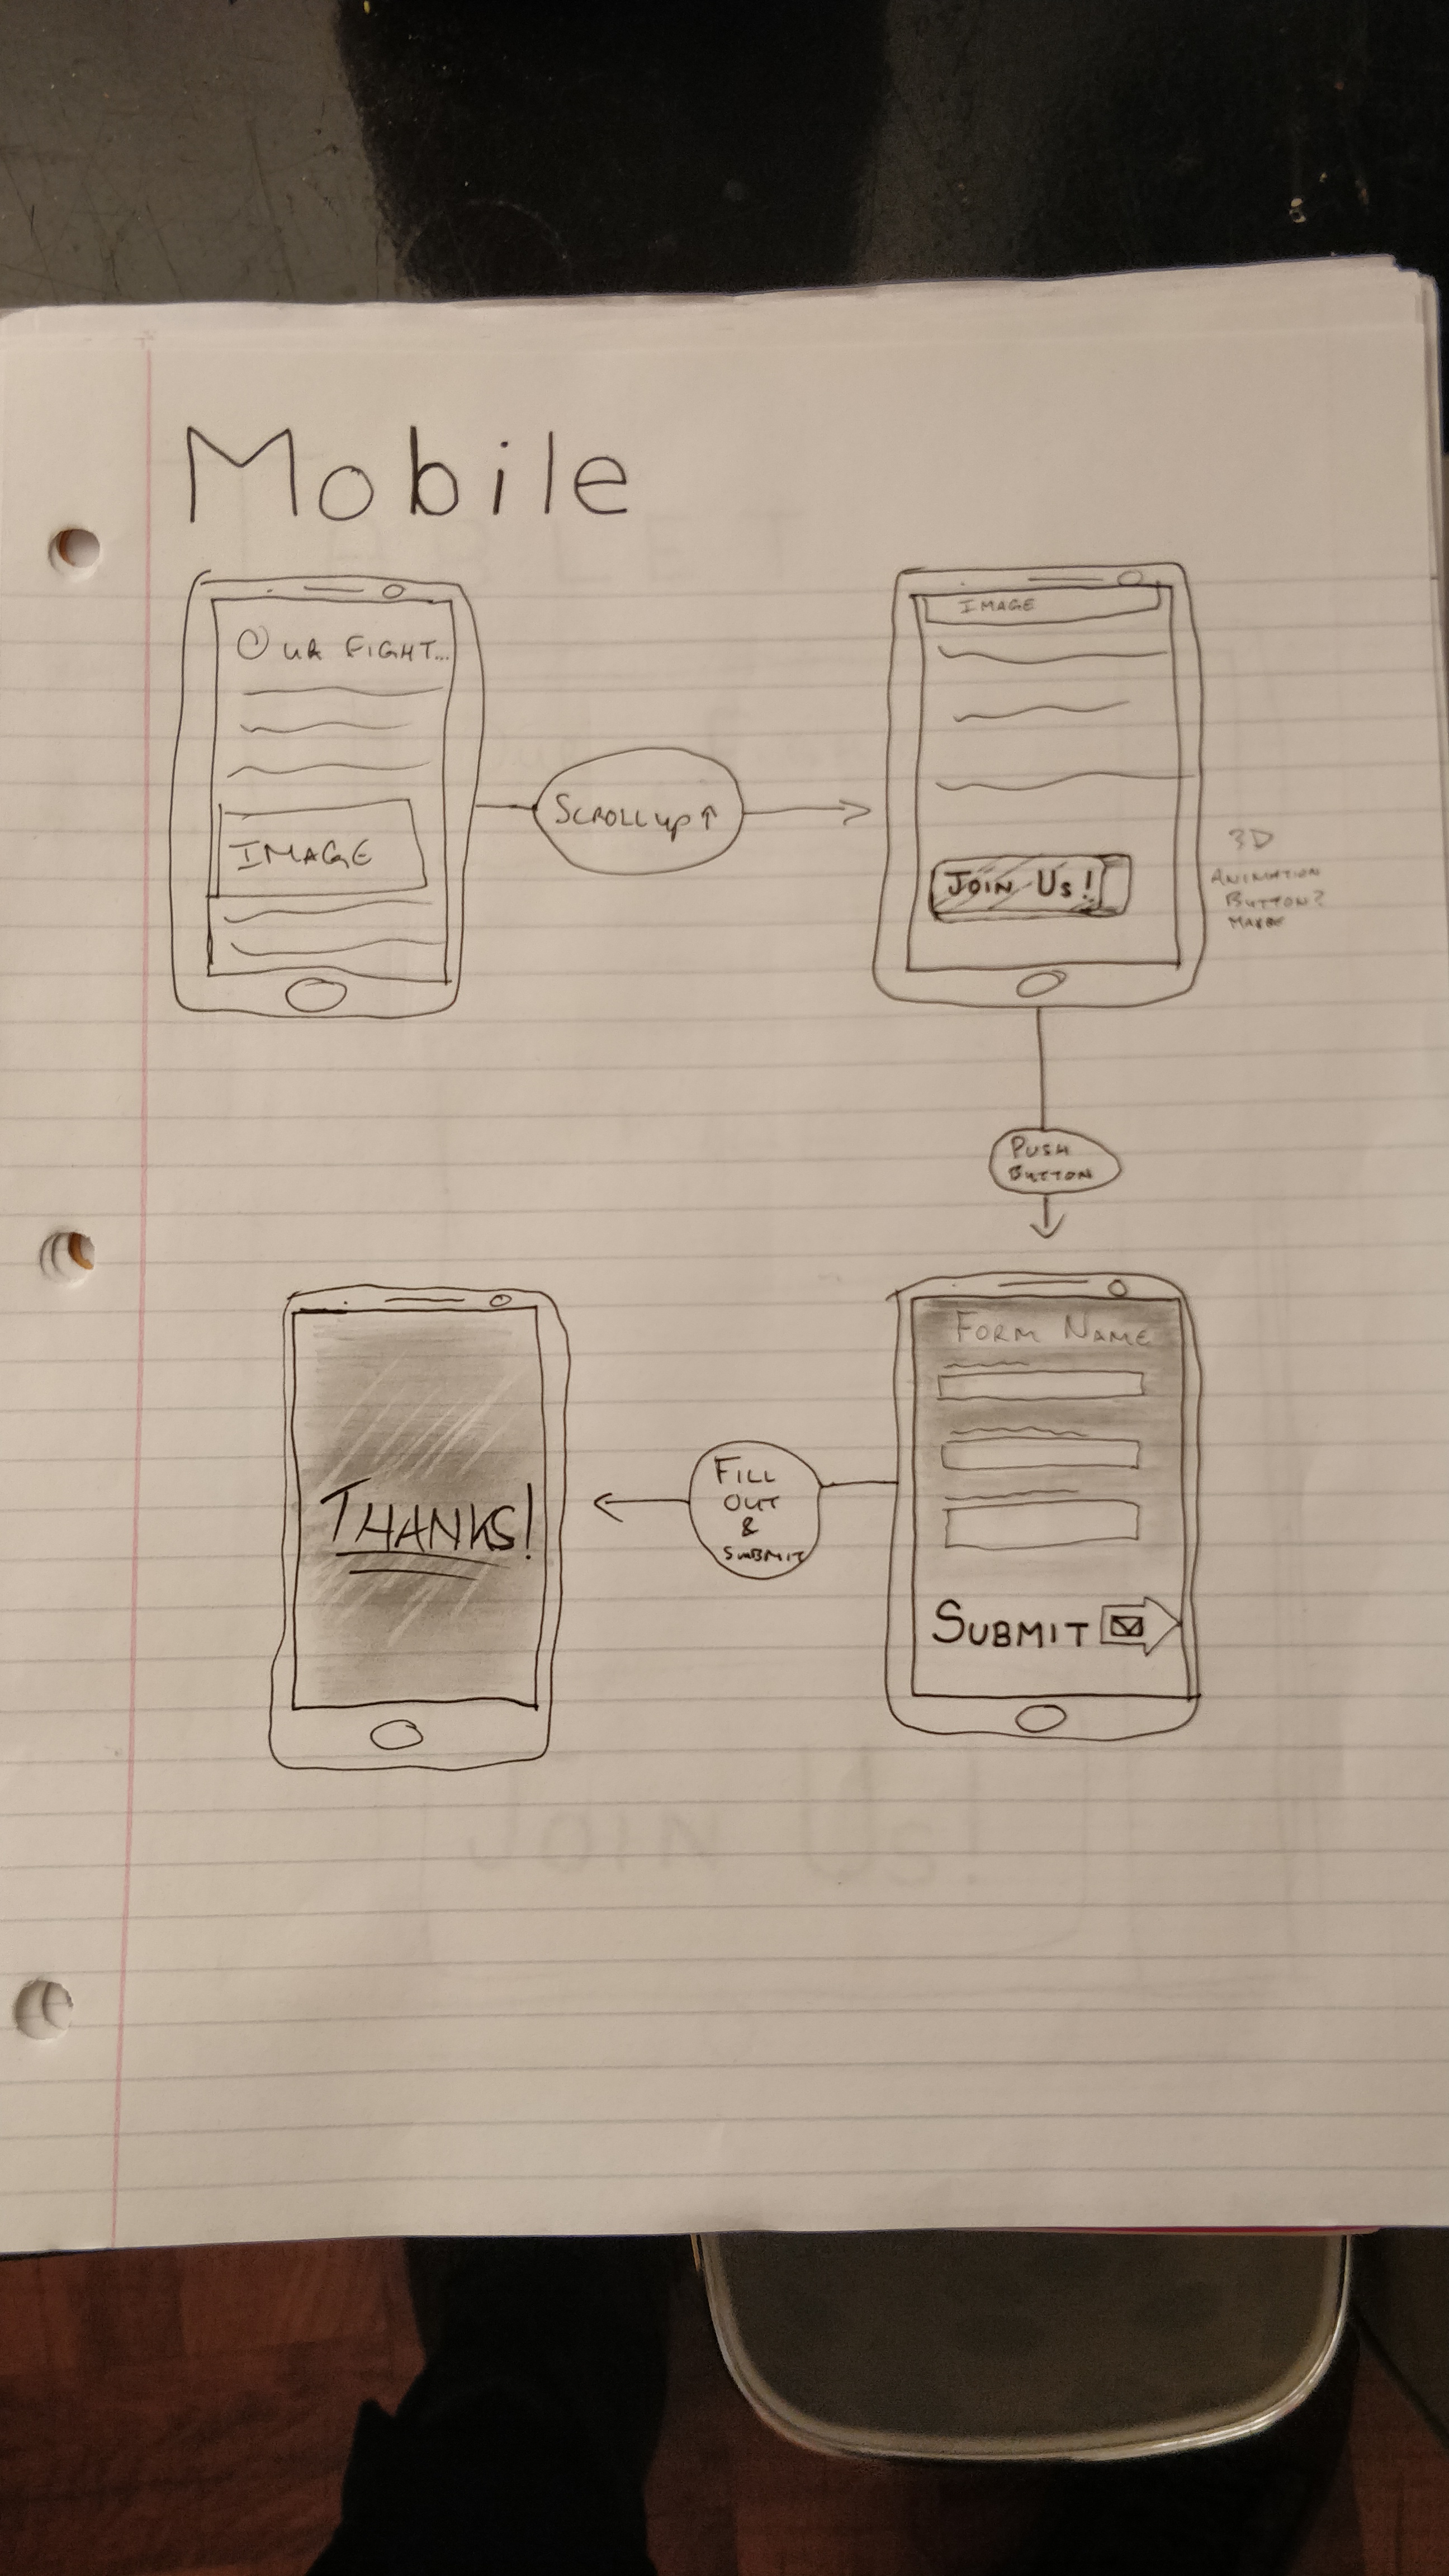 Mobile
OUR FIGHT...
IMAGE
SCROLL up ↑
IMAGE
JOIN US!
3D
ANIMATION
BUTTON?
MAYBE
PUSH
BUTTON
FORM NAME
SUBMIT
FILL
OUT
&
SUBMIT
THANKS!
Join Us!